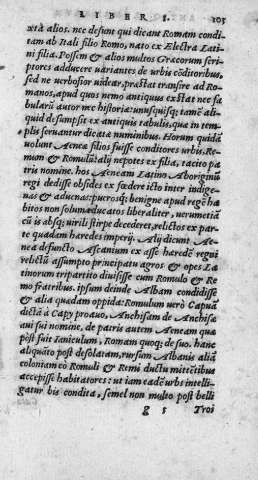 LIBER I. 105
xtà alios. nec defunt qui dicant Romam condi-
tam ab Itali filio Romo, nato ex Electra Lati-
ni filia. Possem & alios multos Græcorum scri-
ptores adducere uariantes de urbis cōditoribus,
sed ne uerbosior uidear, præstat transire ad Ro-
manos, apud quos nemo antiquus extat nec fa-
bularū autor nec historiæ: unusquisq; tamē ali-
quid desumpsit ex antiquis tabulis, qua in tem-
plis seruantur dicatæ numinibus. Horum quidā
uolunt Aeneæ filios fuisse conditores urbis, Re-
mum & Romulū: alij nepotes ex filia, tacito pa-
tris nomine. hos Aeneam Latino Aboriginū
regi dedisse obsides ex fœdere icto inter indige-
nas & aduenas: pucrosq; benigne apud regē ha
bitos non solum educatos liberaliter, uerumetiā
cū is absq; uirili stirpe decederet, relictos ex par-
te quadam haredes imperij. Alij dicunt Ae-
nea defuncto Ascanium ex asse haredē regni
relictū assumpto principatu agros & opes La-
tinorum tripartito diuisisse cum Romulo & Re
mo fratribus. ipsum deinde Albam condidisse
& alia quædam oppida: Romulum uerò Capuā
dictā à Capy proauo, Anchisam de Anchisæ
aui sui nomine, de patris autem Aeneam quæ
pòst fuit Ianiculum, Romam quoq; de suo. hanc
aliquāto post desolatam, rursum Albanis aliā
coloniam eò Romuli & Remi ductu mittētibus
accepisse habitatores: ut iam eadē urbs intelli-
gatur bis condita, semel non multo post belli
g 5 Troi